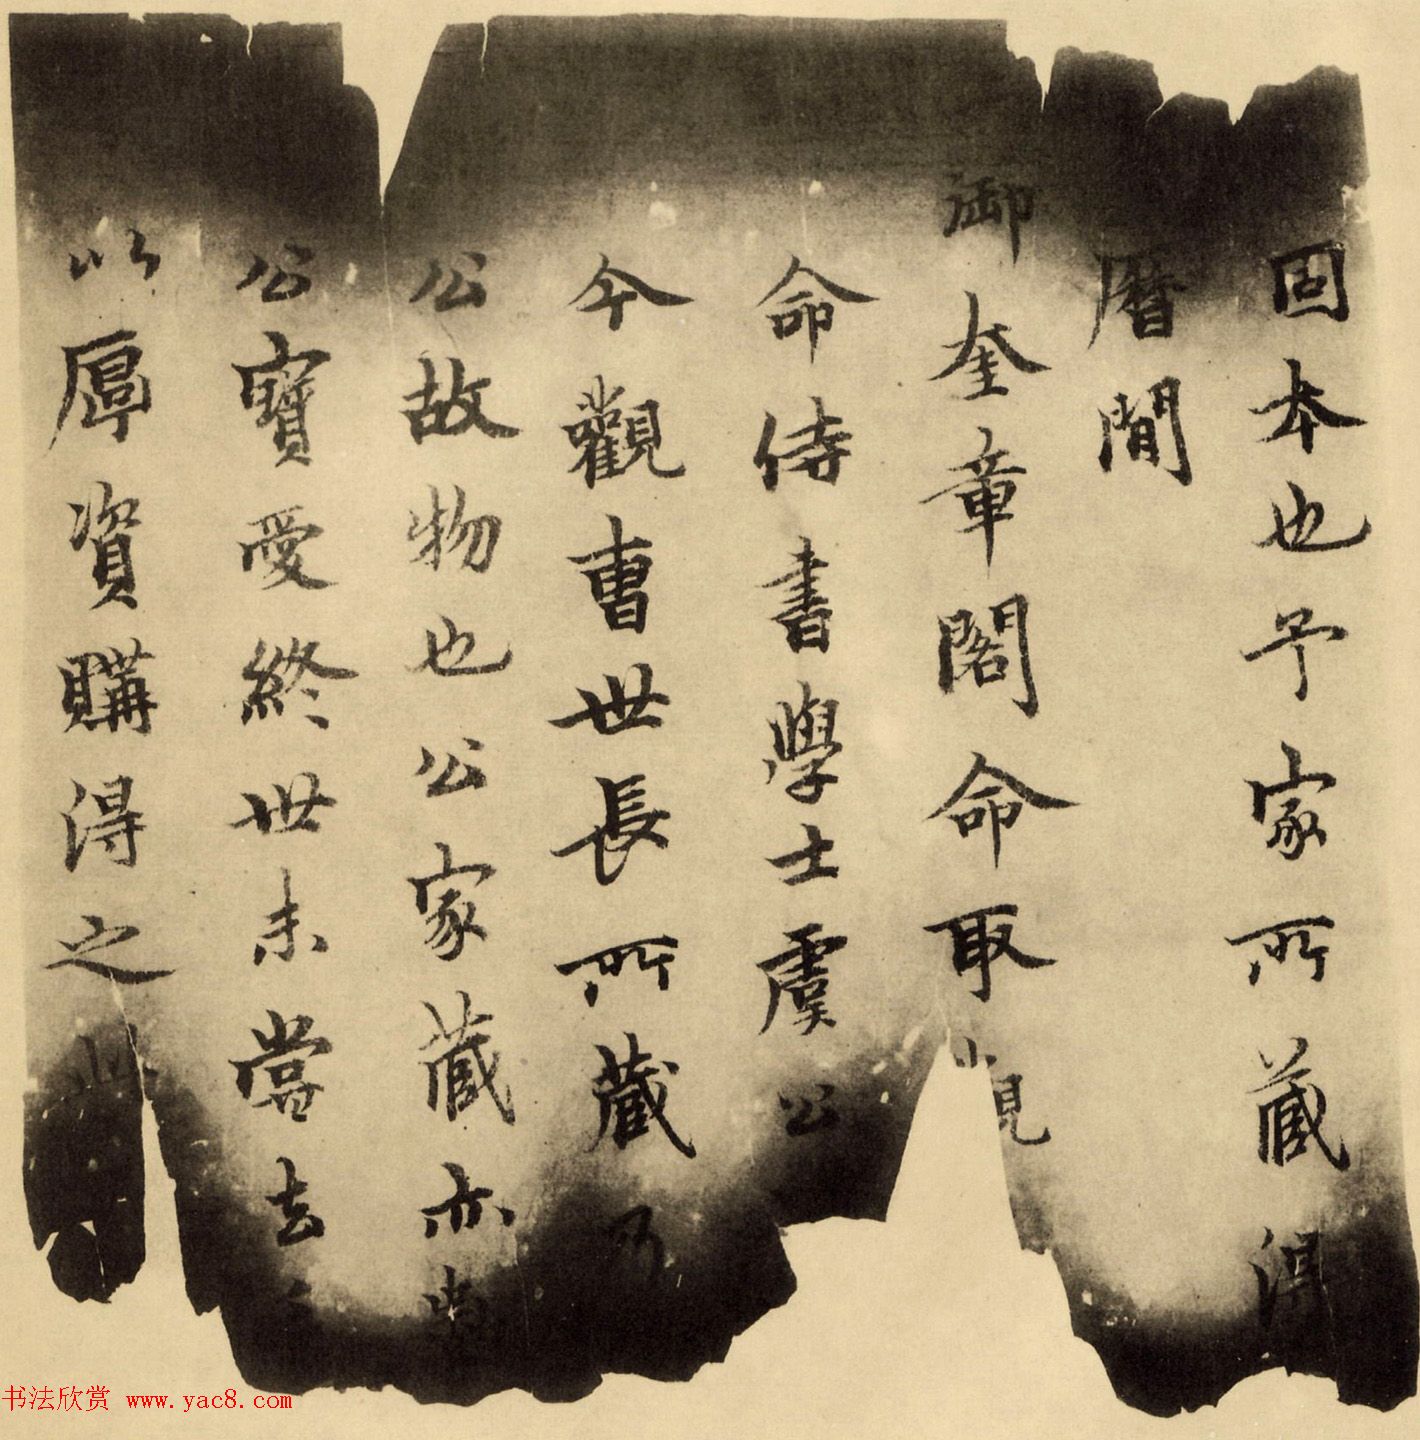 固本也予家所藏得
曆閒
御奎章閣命取
命侍書學士虞公
今觀曹世長所藏乃
公故物也公家藏亦嘗
公寶愛終世未嘗去
以厚資購得之
书法欣赏 www.yac8.com